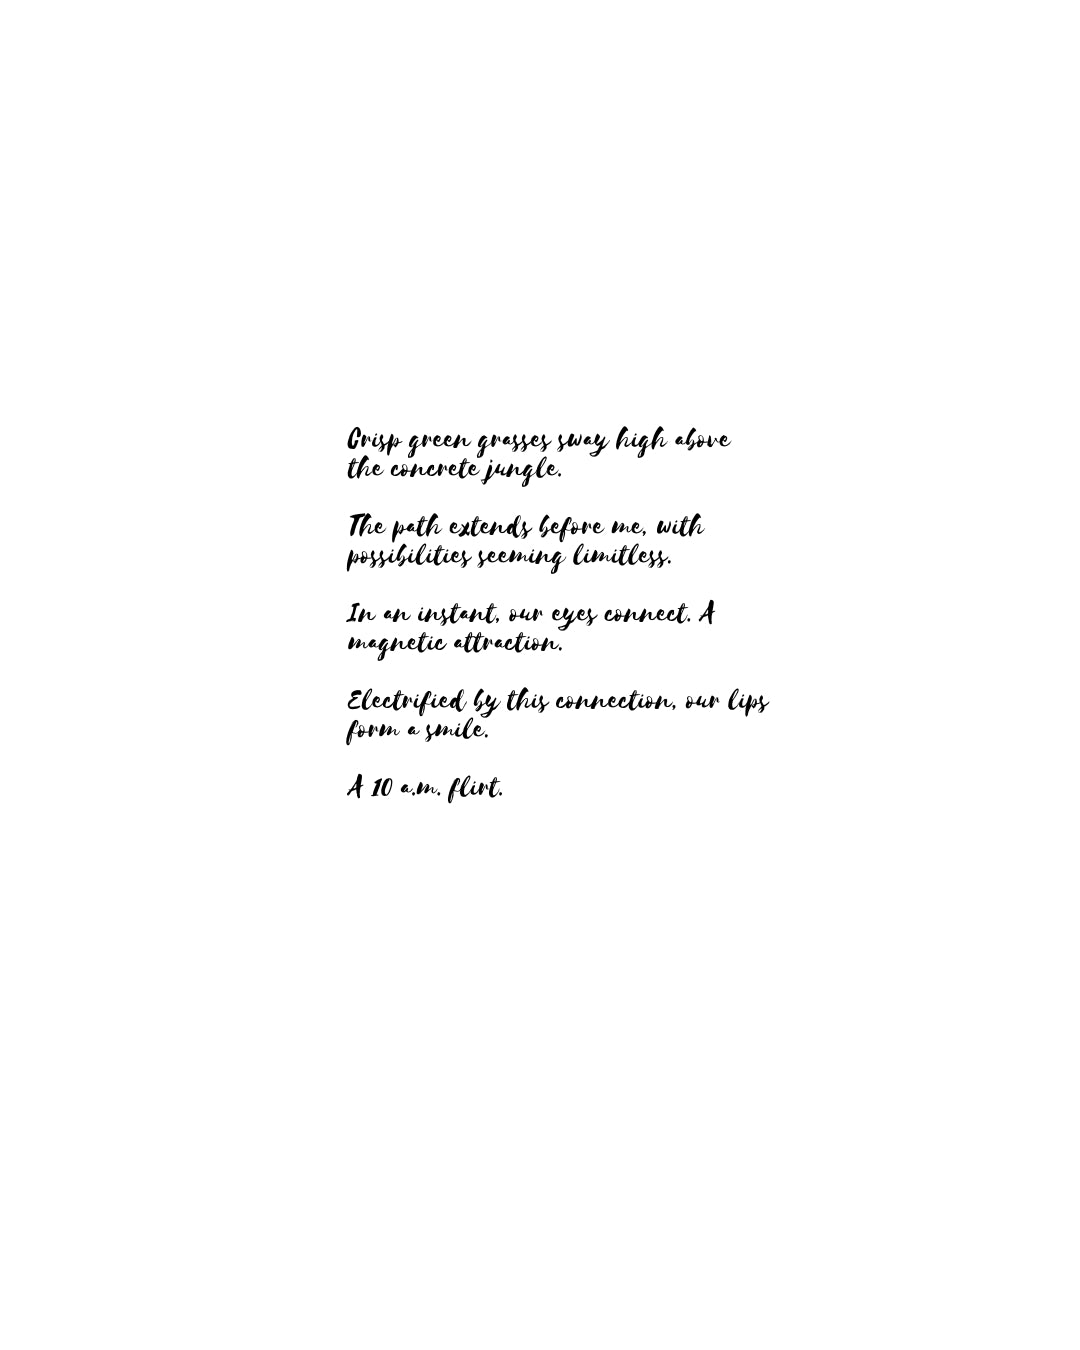 Crisp green grasses sway high above
the concrete jungle.
The path extends before me, with
possibilities seeming limitless.
In an instant, our eyes connect. A
magnetic attraction.
Electrified by this connection, our lips
form a smile.
A 10 a.m. flirt.